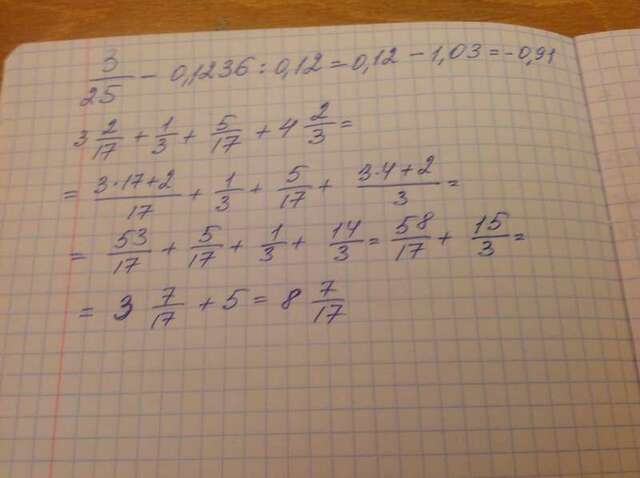 3/25 - 0,1236 : 0,12 = 0,12 - 1,03 = -0,91
3 2/17 + 1/3 + 5/17 + 4 2/3 =
= 3·17+2/17 + 1/3 + 5/17 + 3·4+2/3 =
= 53/17 + 5/17 + 1/3 + 14/3 = 58/17 + 15/3 =
= 3 7/17 + 5 = 8 7/17